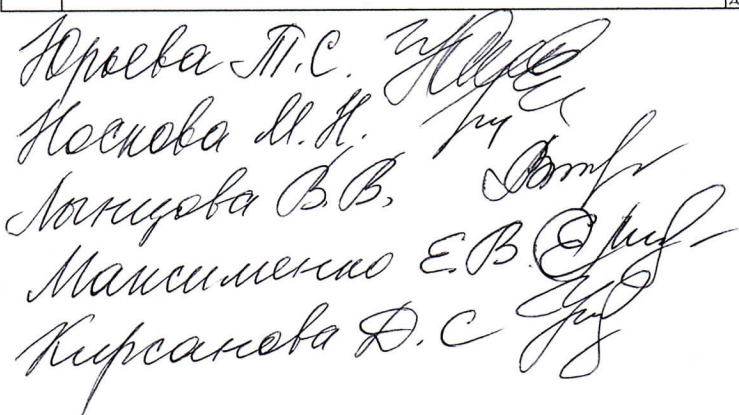 Юрьева Т.С.
Носкова М.Н.
Лынцова В.В.
Максименко Е.В.
Кирсанова Д.С